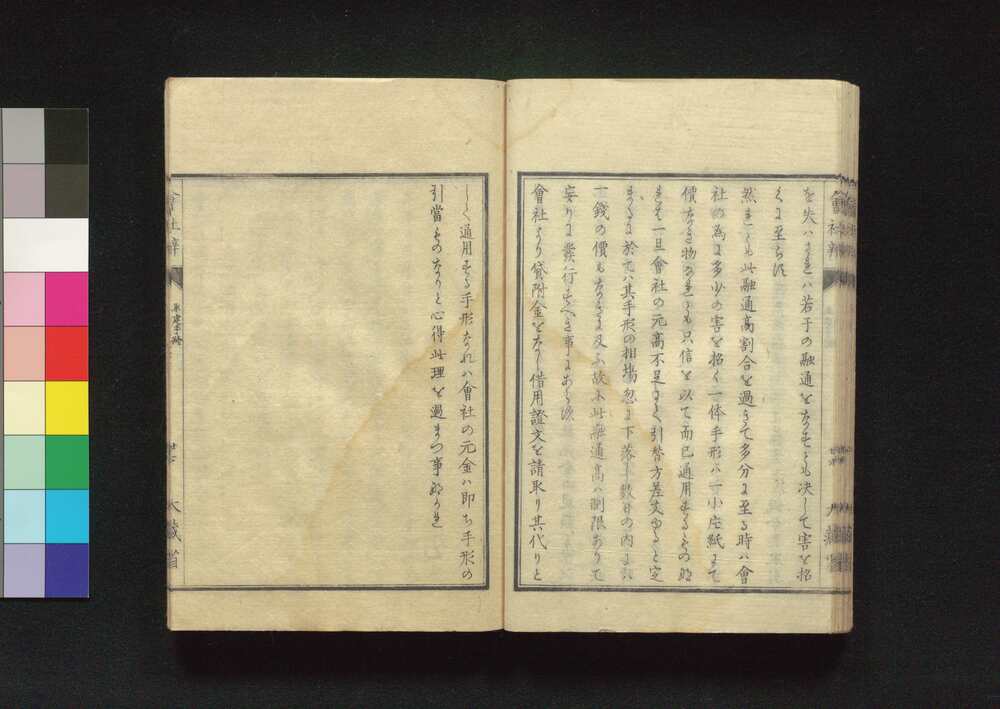 を失ハされハ若干の融通をなすとも决して害を招
くに至らす
然れとも此融通高割合を過きて多分に至る時ハ會
社の為に多少の害を招く一体手形ハ一小片紙にて
價なき物なれとも只信を以て而已通用するもの故
もし一旦會社の元高不足にて引替方差支ゆると定
まるに於てハ其手形の相場忽に下落し數日の内に
一錢の價もなきに及ふ故に此融通高ハ制限ありて
妄りに發行すへき事にあらす
會社より貸附金をなし借用證文を請取り其代りと
會社辨
大藏省
して通用する手形なれハ會社の元金ハ即ち手形の
引當ものなりと心得此理を過まつ事勿れ
會社辨
廿七
大藏省